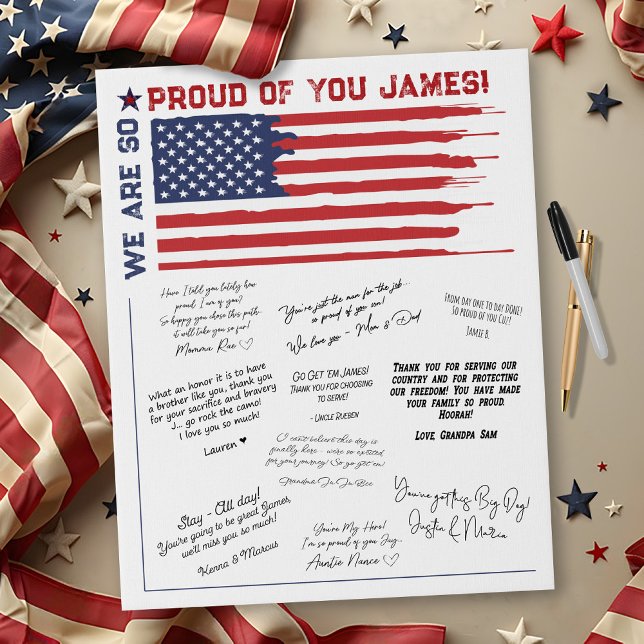 WE ARE SO
PROUD OF YOU JAMES!
Have I told you lately how
proud I am of you?
So happy you chose this path..
it will take you so far!
Momma Rae
You're just the man for the job...
so proud of you son!
We love you - Mom & Dad
FROM DAY ONE TO DAY DONE!
SO PROUD OF YOU CUZ!
JAMIE B.
What an honor it is to have
a brother like you, thank you
for your sacrifice and bravery
J... go rock the camo!
I love you so much!
Lauren
GO GET 'EM JAMES!
THANK YOU FOR CHOOSING
TO SERVE!
- UNCLE RUEBEN
THANK YOU FOR SERVING OUR
COUNTRY AND FOR PROTECTING
OUR FREEDOM! YOU HAVE MADE
YOUR FAMILY SO PROUD.
HOORAH!
LOVE GRANDPA SAM
I can't believe this day is
finally here - were so excited
for your journey! So go get 'em
Grandma Ju Ju Bee
Slay - All day!
You're going to be great James,
we'll miss you so much!
Kenna & Marcus
You're My Hero!
I'm so proud of you Jay..
Auntie Nance
You've got this Big Dog!
Justin & Maria